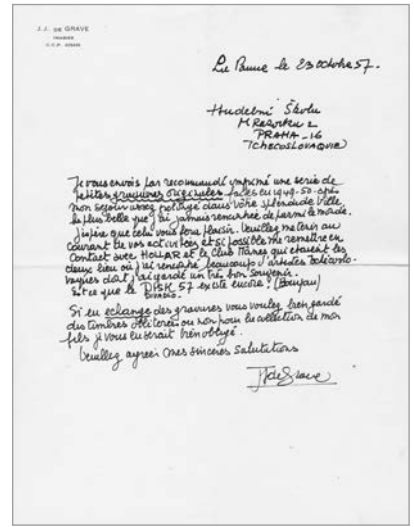 J.J. DE GRAVE
le 23 octobre 57.
Hudební Školu
2
PRAHA-16
(TCHECOSLOVAQUIE)
Je vous envois par recommandé imprimé une serie de
petites gravures originales faites en 1949-50 apres
mon sejour assez prolongé dans votre splendide Ville,
la plus belle que j'ai jamais rencontrée de parmi le monde.
J'espère que cela vous fera plaisir. Veuillez me tenir au
courant de vos activitées et si possible me remettre en
Contact avec HOLLAR et le Club qui étaient les
deux lieu où j'ai rencontré beaucoup d'artistes tchécoslo-
vaques dont j'ai gardé un très bon Souvenir.
Est ce que le DISK 57 existe encore?
DIVADLO
Si en echange des gravures vous voulez bien gardé
des timbres oblitérés ou non pour la collection de mon
fils je vous en serait bien obligé.
Veuillez agréer mes sincères Salutations
JJ de Grave